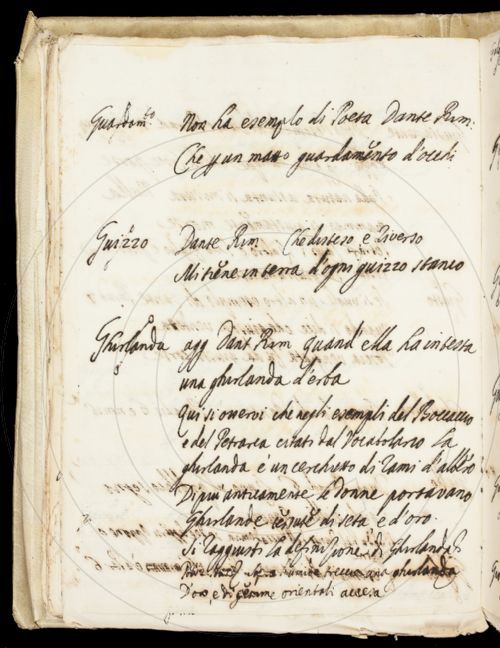 Guardam.to Non ha esempio di Poeta Dante Rim:
Che p un moto guardamento d'occhi
Guizzo Dante Rim Che disteso, e Riverso
Mi tiene in terra d'ogni guizzo stanco
Ghirlanda agg Dant Rim quand' ella ha in testa
una ghirlanda d'erba
qui si osservi che negli esempli del Boccaccio
e del Petrarca citati dal Vocabolario la
ghirlanda è un cerchietto di rami d'albero
Di più anticamente le donne portavano
Ghirlande tessute di seta e d'oro.
Si raggiusti la definizione di Ghirlanda
treccia una ghirlanda
D'oro, e di gemme orientali accesa